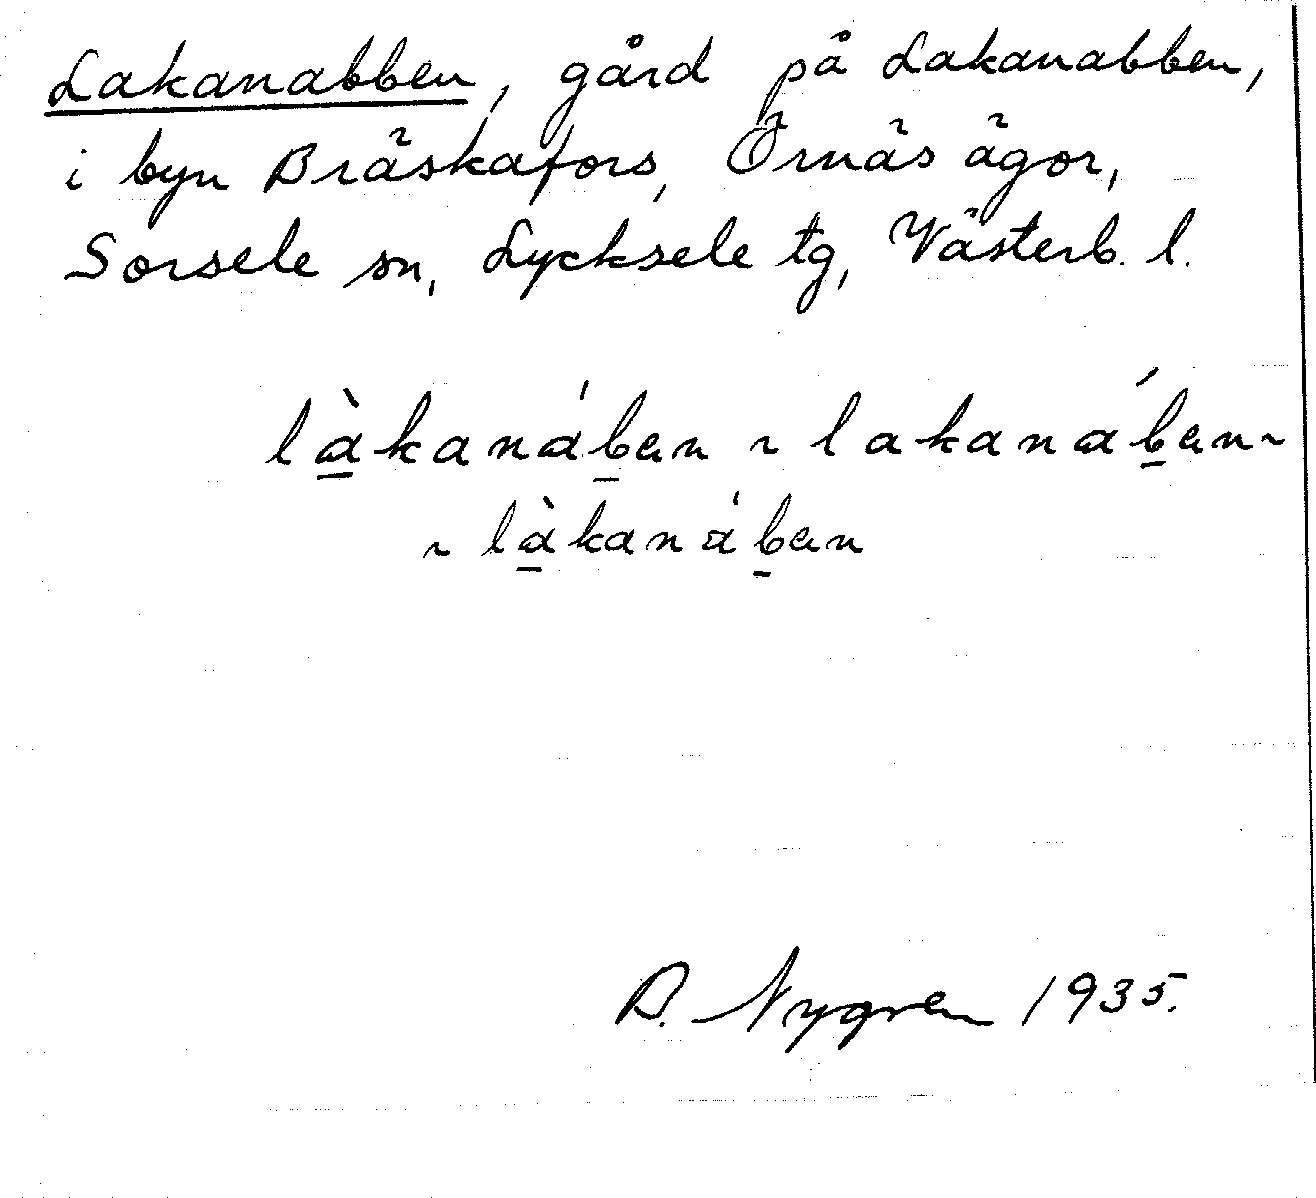 Lakanabben, gård på Lakanabben,
i byn Bräskafors, Örnäs ägor,
Sorsele sn, Lycksele tg, Västerb. l.
là̱kanáḇen ~ lakanáḇen ~
~ là̱kanáḇen
B. Nygren 1935.